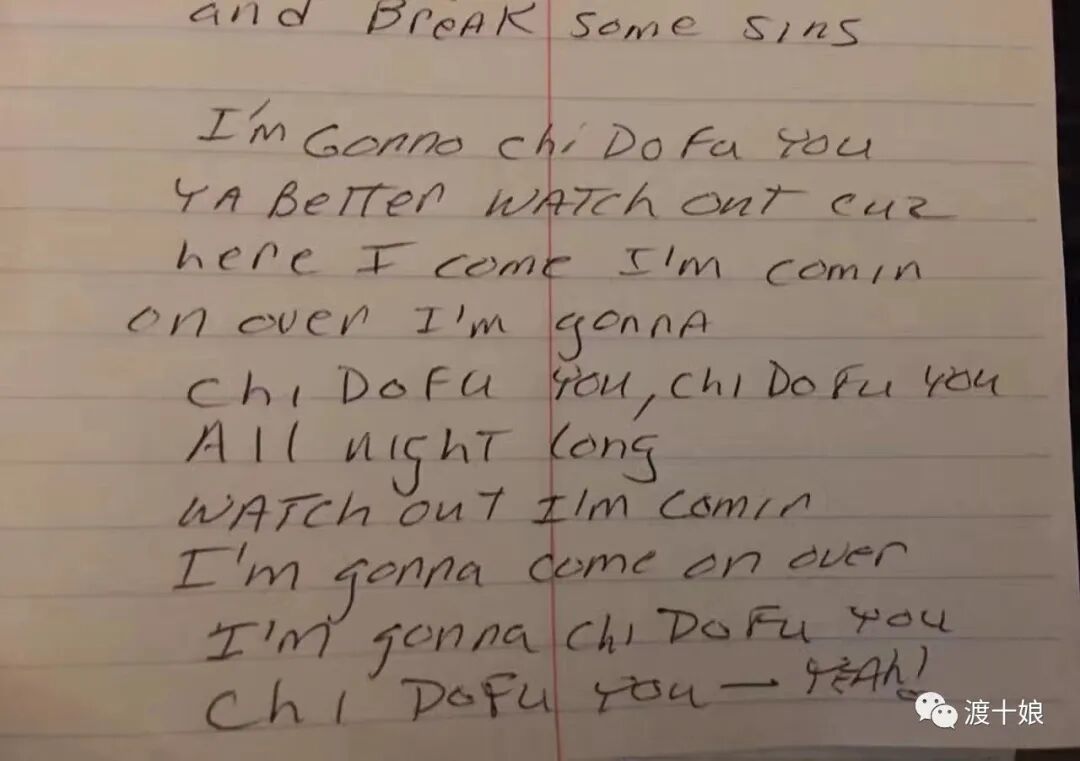 and BreAK some sins
I'm Gonna chi Do Fu You
YA BeTTer WATch out cuz
here I come I'm comin
on over I'm gonnA
chi Do Fu You, chi Do Fu You
All nighT long
WATch out I'm comin
I'm gonna come on over
I'm gonna chi Do Fu You
chi Do Fu You — YEAh!
渡十娘